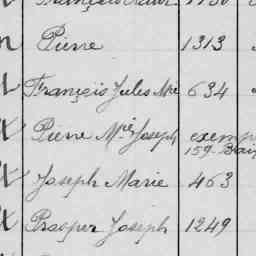 Pierre 1313
François Jules Mie 634
Pierre Mie Joseph exemp
159 Bai
Joseph Marie 463
Prosper Joseph 1249